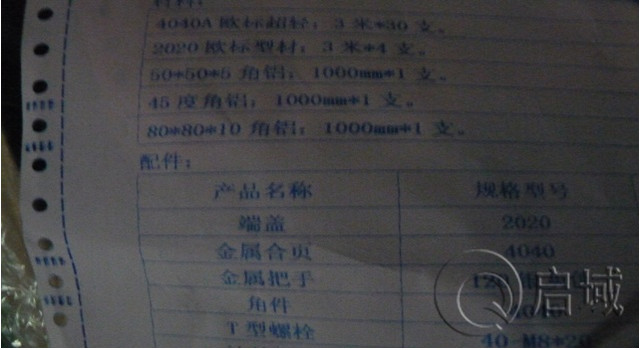 材料：
4040A 欧标超轻；3 米*30 支。
2020 欧标型材；3 米*4 支。
50*50*5 角铝；1000mm*1 支。
45 度角铝；1000mm*1 支。
80*80*10 角铝：1000mm*1 支。
配件：
产品名称 规格型号
端盖 2020
金属合页 4040
金属把手
角件 4040
T 型螺栓 40-M8*20
启域